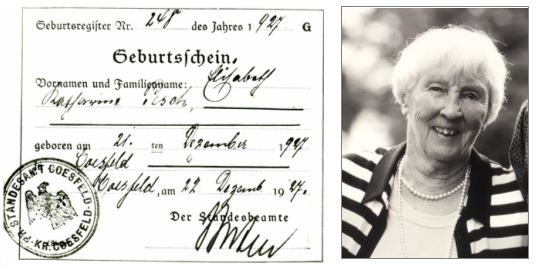 Geburtsregister Nr. 248 des Jahres 1927 G
Geburtsschein.
Vornamen und Familienname: Elisabeth
Katharina
geboren am 21. ten Dezember 1927
Coesfeld
Coesfeld, am 22. Dezemb 1927.
Der Standesbeamte
STANDESAMT COESFELD
PR. KR. COESFELD